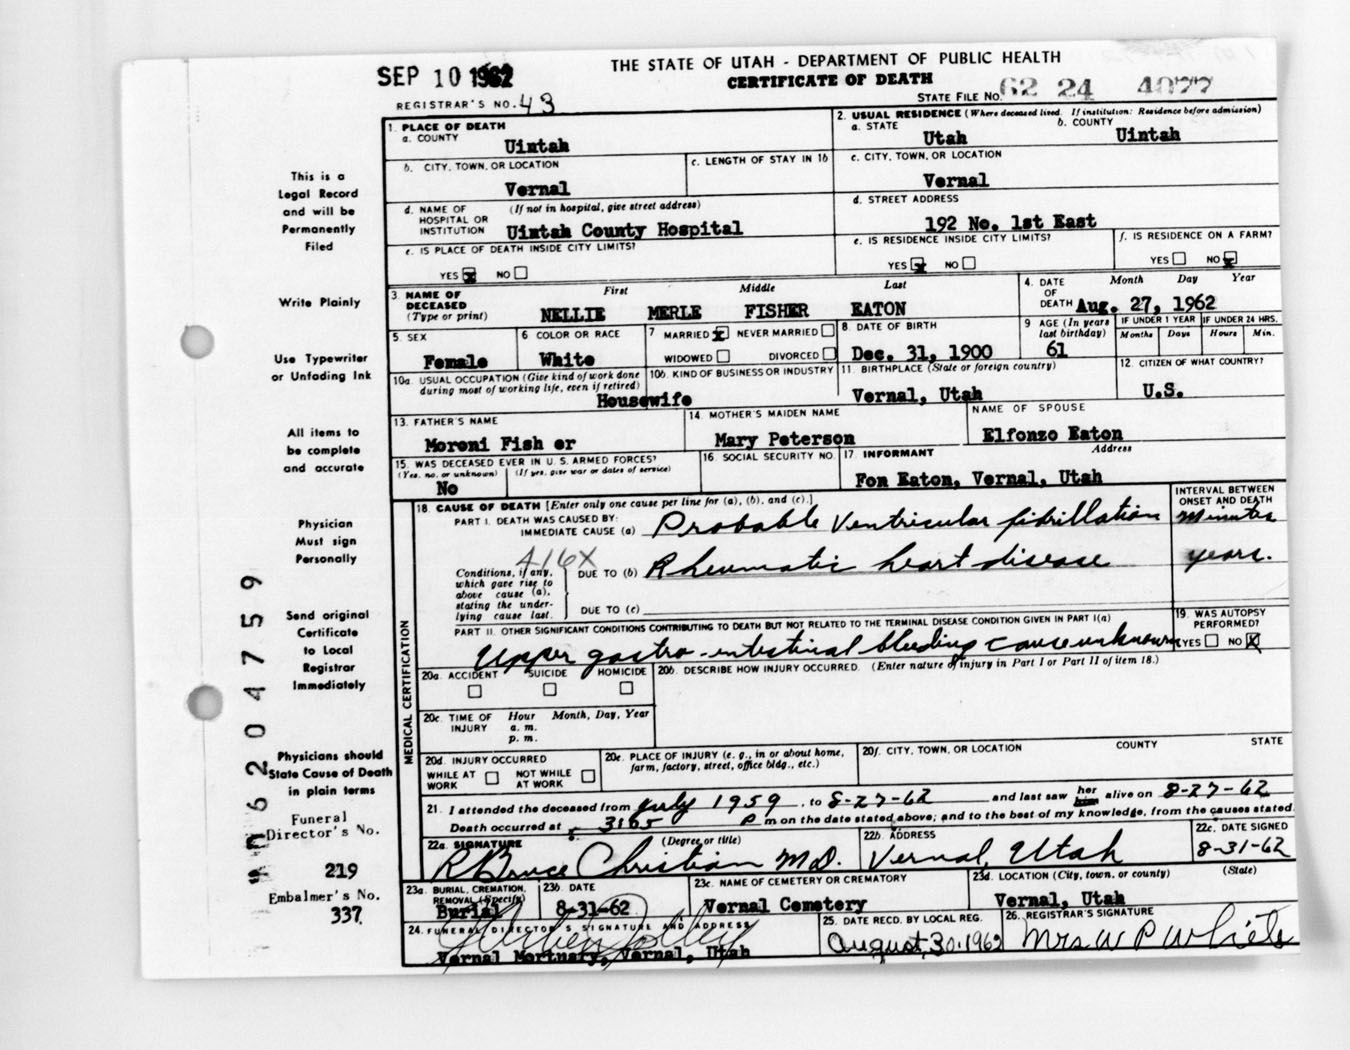 SEP 10 1962
THE STATE OF UTAH - DEPARTMENT OF PUBLIC HEALTH
CERTIFICATE OF DEATH
STATE FILE No. 62 24 4077
REGISTRAR'S NO. 43
1. PLACE OF DEATH
a. COUNTY
Uintah
2. USUAL RESIDENCE (Where deceased lived. If institution: Residence before admission)
a. STATE
Utah
b. COUNTY
Uintah
b. CITY, TOWN, OR LOCATION
Vernal
c. LENGTH OF STAY IN 1b
c. CITY, TOWN, OR LOCATION
Vernal
d. NAME OF HOSPITAL OR INSTITUTION
(If not in hospital, give street address)
Uintah County Hospital
d. STREET ADDRESS
192 No. 1st East
e. IS PLACE OF DEATH INSIDE CITY LIMITS?
YES x NO
e. IS RESIDENCE INSIDE CITY LIMITS?
YES x NO
f. IS RESIDENCE ON A FARM?
YES NO x
3. NAME OF DECEASED (Type or print)
First Middle Last
NELLIE MERLE FISHER EATON
4. DATE OF DEATH
Month Day Year
Aug. 27, 1962
5. SEX
Female
6 COLOR OR RACE
White
7 MARRIED x NEVER MARRIED
WIDOWED DIVORCED
8. DATE OF BIRTH
Dec. 31, 1900
9 AGE (In years last birthday)
61
IF UNDER 1 YEAR
Months Days
IF UNDER 24 HRS.
Hours Min.
10a. USUAL OCCUPATION (Give kind of work done during most of working life, even if retired)
Housewife
10b. KIND OF BUSINESS OR INDUSTRY
11. BIRTHPLACE (State or foreign country)
Vernal, Utah
12. CITIZEN OF WHAT COUNTRY?
U.S.
13. FATHER'S NAME
Moroni Fish er
14. MOTHER'S MAIDEN NAME
Mary Peterson
NAME OF SPOUSE
Elfonzo Eaton
15. WAS DECEASED EVER IN U. S. ARMED FORCES?
(Yes, no, or unknown) (If yes, give war or dates of service)
No
16. SOCIAL SECURITY NO.
17. INFORMANT Address
Fon Eaton, Vernal, Utah
18. CAUSE OF DEATH [Enter only one cause per line for (a), (b), and (c).]
PART I. DEATH WAS CAUSED BY:
IMMEDIATE CAUSE (a) Probable Ventricular fibrillation
INTERVAL BETWEEN ONSET AND DEATH
Minutes
416X
Conditions, if any, which gave rise to above cause (a), stating the underlying cause last.
DUE TO (b) Rheumatic heart disease
years.
DUE TO (c)
PART II. OTHER SIGNIFICANT CONDITIONS CONTRIBUTING TO DEATH BUT NOT RELATED TO THE TERMINAL DISEASE CONDITION GIVEN IN PART I(a)
Upper gastro-intestinal bleeding cause unknown
19. WAS AUTOPSY PERFORMED?
YES NO X
MEDICAL CERTIFICATION
20a. ACCIDENT SUICIDE HOMICIDE
20b. DESCRIBE HOW INJURY OCCURRED. (Enter nature of injury in Part I or Part II of item 18.)
20c. TIME OF INJURY
Hour Month, Day, Year
a. m.
p. m.
20d. INJURY OCCURRED
WHILE AT WORK NOT WHILE AT WORK
20e. PLACE OF INJURY (e. g., in or about home, farm, factory, street, office bldg., etc.)
20f. CITY, TOWN, OR LOCATION COUNTY STATE
21. I attended the deceased from July 1959, to 8-27-62 and last saw her him alive on 8-27-62
Death occurred at 3:05 P m on the date stated above; and to the best of my knowledge, from the causes stated.
22a. SIGNATURE (Degree or title)
R Bruce Christian M.D.
22b. ADDRESS
Vernal, Utah
22c. DATE SIGNED
8-31-62
23a. BURIAL, CREMATION, REMOVAL (Specify)
Burial
23b. DATE
8-31-62
23c. NAME OF CEMETERY OR CREMATORY
Vernal Cemetery
23d. LOCATION (City, town, or county) (State)
Vernal, Utah
24. FUNERAL DIRECTOR'S SIGNATURE AND ADDRESS
Vernal Mortuary, Vernal, Utah
25. DATE RECD. BY LOCAL REG.
August, 30, 1962
26. REGISTRAR'S SIGNATURE
Mrs W P White
This is a
Legal Record
and will be
Permanently
Filed
Write Plainly
Use Typewriter
or Unfading Ink
All items to
be complete
and accurate
Physician
Must sign
Personally
Send original
Certificate
to Local
Registrar
Immediately
Physicians should
State Cause of Death
in plain terms
Funeral
Director's No.
219
Embalmer's No.
337
62 04759